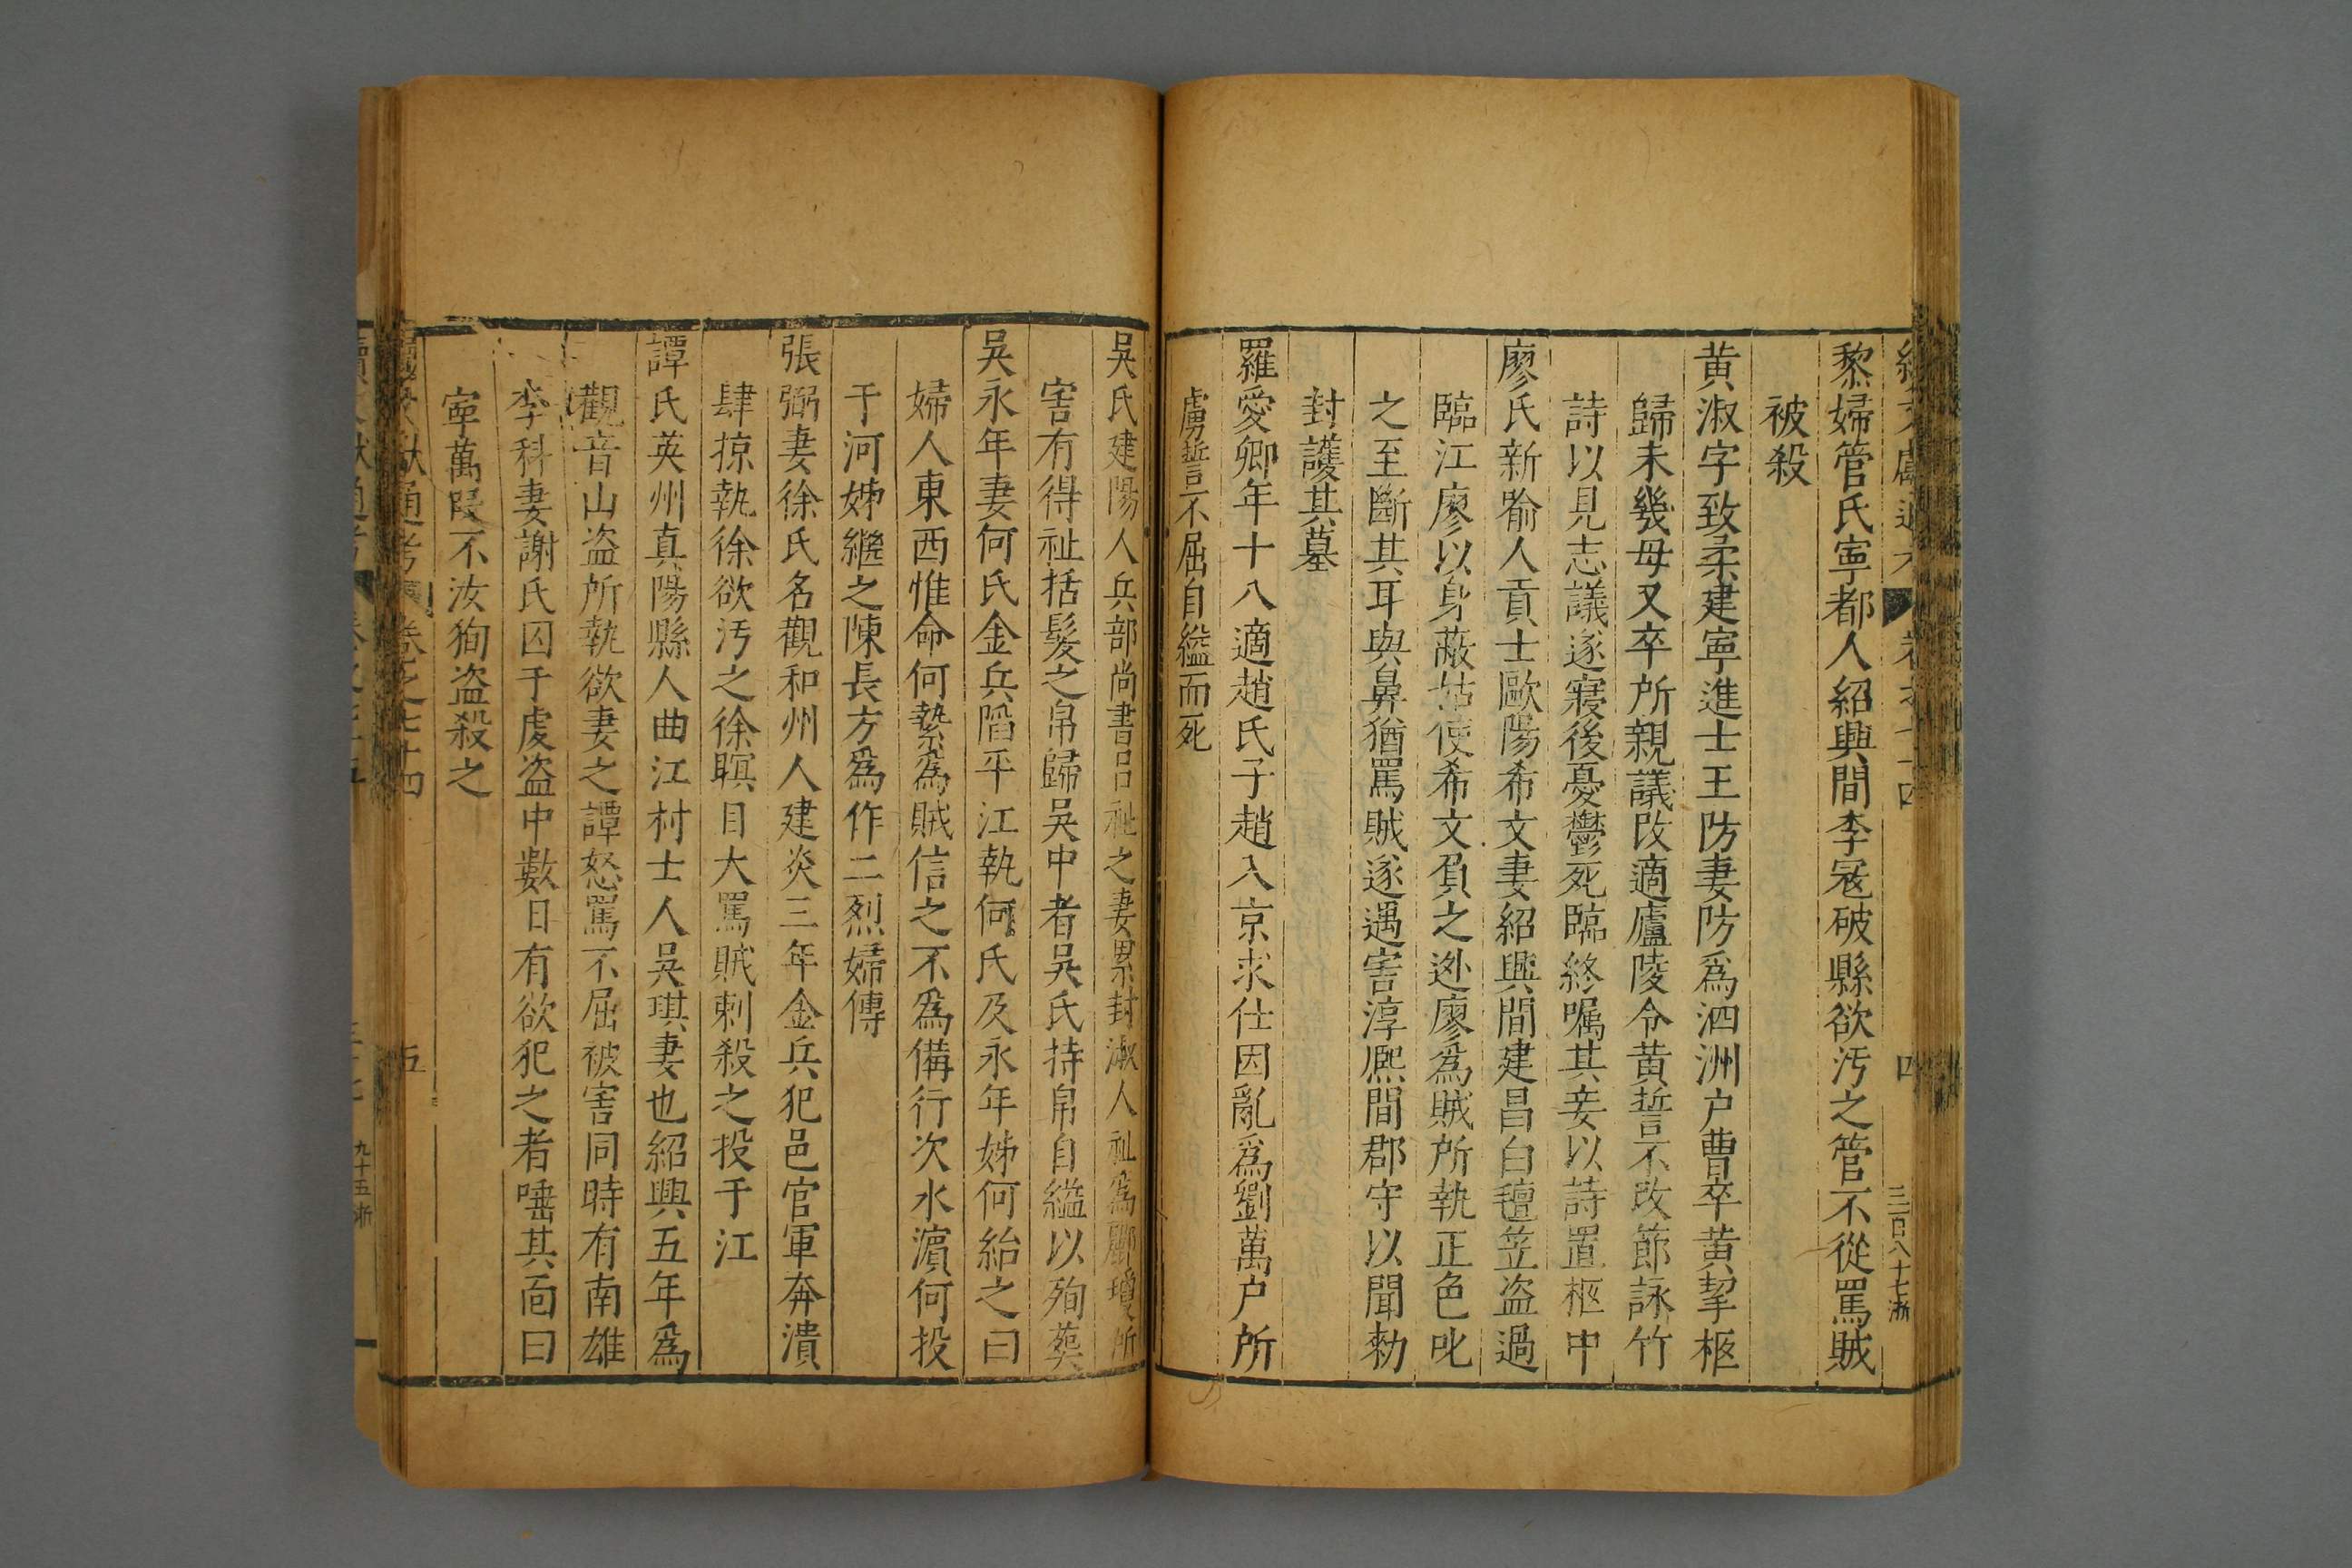 黎婦管氏寧都人紹興間李寇破縣欲汚之管不從罵賊
被殺
黄淑字致柔建寧進士王防妻防爲泗洲户曹卒黄挈柩
歸未幾母又卒所親議改適廬陵令黄誓不改節詠竹
詩以見志議遂寢後憂鬱死臨終嘱其妾以詩置柩中
廖氏新喻人貢士歐陽希文妻紹興間建昌白氊笠盗過
臨江廖以身蔽姑使希文負之逃廖爲賊所執正色叱
之至斷其耳與鼻猶罵賊遂遇害淳熈間郡守以聞勑
封護其墓
羅愛卿年十八適趙氏子趙入京求仕因亂爲劉萬户所
虜誓不屈自縊而死
吳氏建陽人兵部尚書吕祉之妻累封淑人祉爲酈瓊所
害有得祉括髪之帛歸吳中者吳氏持帛自縊以殉葬
吳永年妻何氏金兵陷平江執何氏及永年姊何紿之曰
婦人東西惟命何縶爲賊信之不爲備行次水濵何投
于河姊繼之陳長方爲作二烈婦傳
張弼妻徐氏名觀和州人建炎三年金兵犯邑官軍奔潰
肆掠執徐欲汚之徐瞑目大罵賊刺殺之投于江
譚氏英州真陽縣人曲江村士人吳琪妻也紹興五年爲
觀音山盗所執欲妻之譚怒罵不屈被害同時有南雄
李科妻謝氏囚于虔盗中數日有欲犯之者唾其面曰
寧萬段不汝狥盗殺之
通考 卷之七十四
五